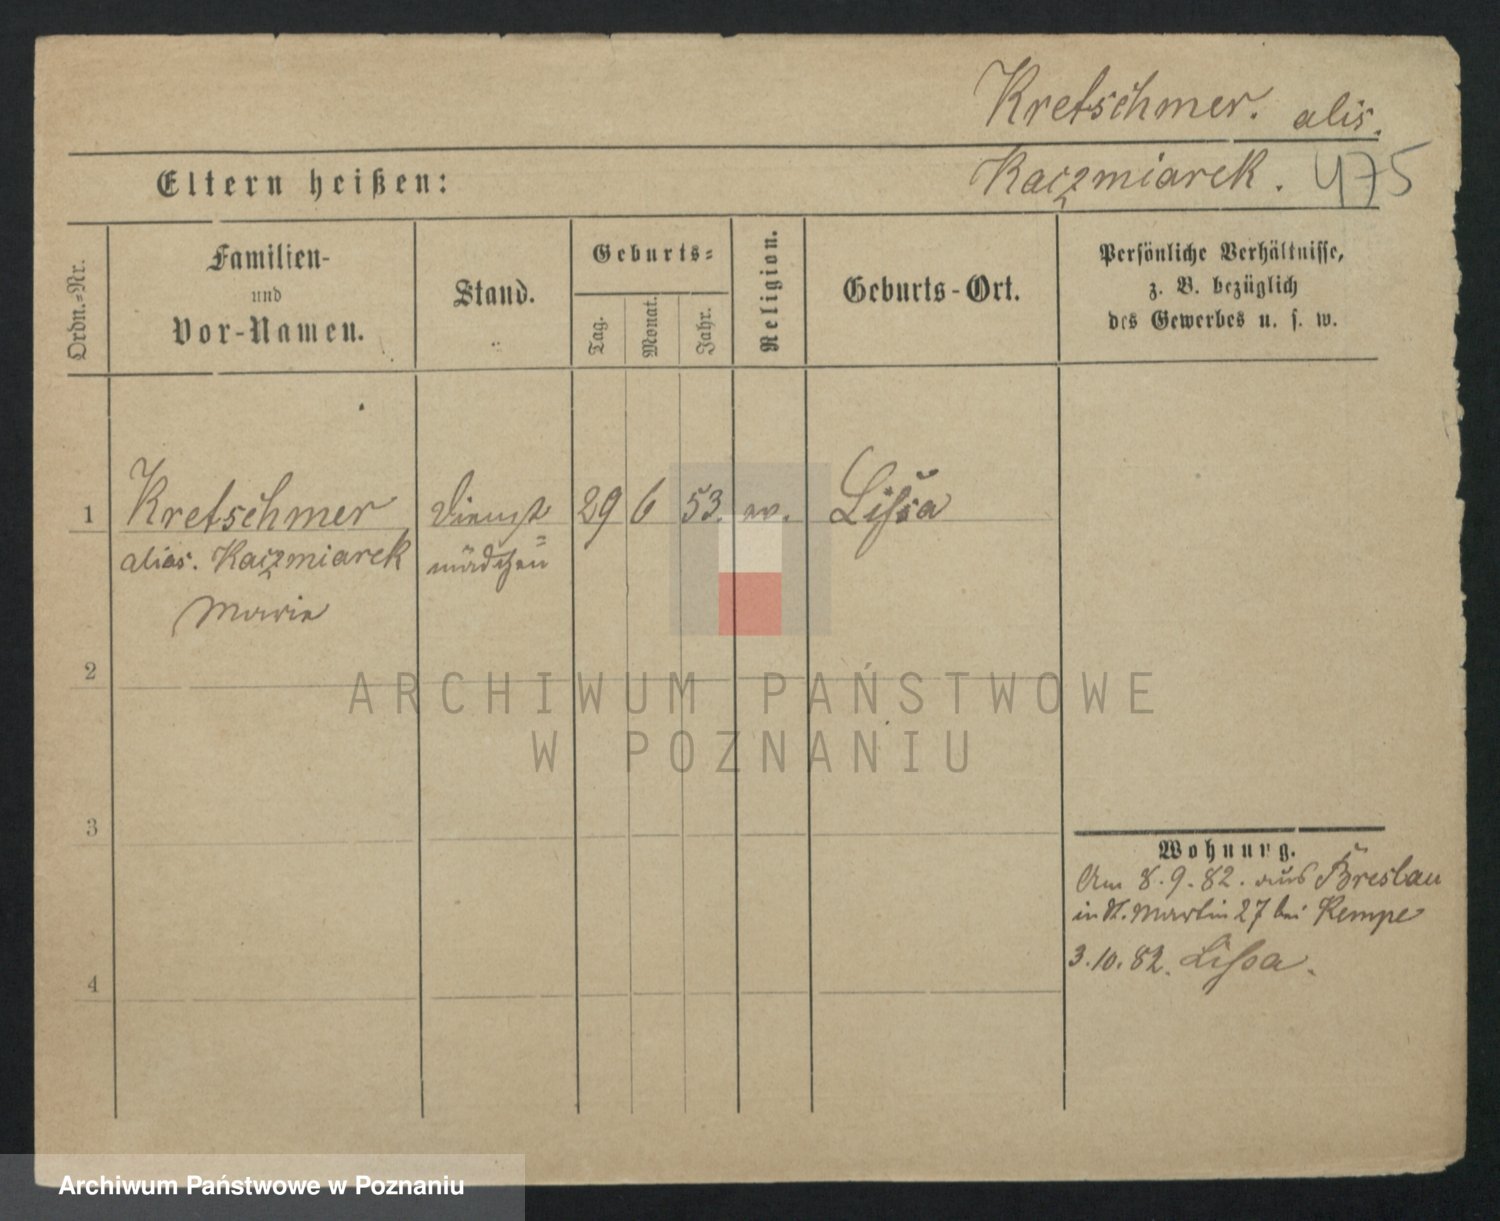 Kretschmer. alis.
Kaczmiarek. 475
Eltern heißen:
Ordn.=Nr.
Familien-
und
Vor-Namen.
Stand.
Geburts=
Tag.
Monat.
Jahr.
Religion.
Geburts-Ort.
Persönliche Verhältnisse,
z. B. bezüglich
des Gewerbes u. s. w.
1 Kretschmer Dienst 29 6 53. ev. Lissa
alias. Kaczmiarek mädchen
Marie
2
ARCHIWUM PAŃSTWOWE
W POZNANIU
3
Wohnung.
Am 8.9.82. aus Breslau
in St. Martin 27 bei Kempe
3.10.82. Lissa.
4
Archiwum Państwowe w Poznaniu